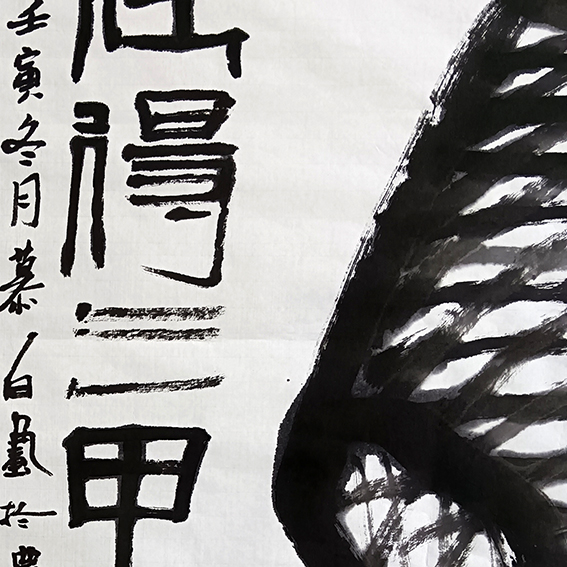 得三甲
壬寅冬月慕白畫於